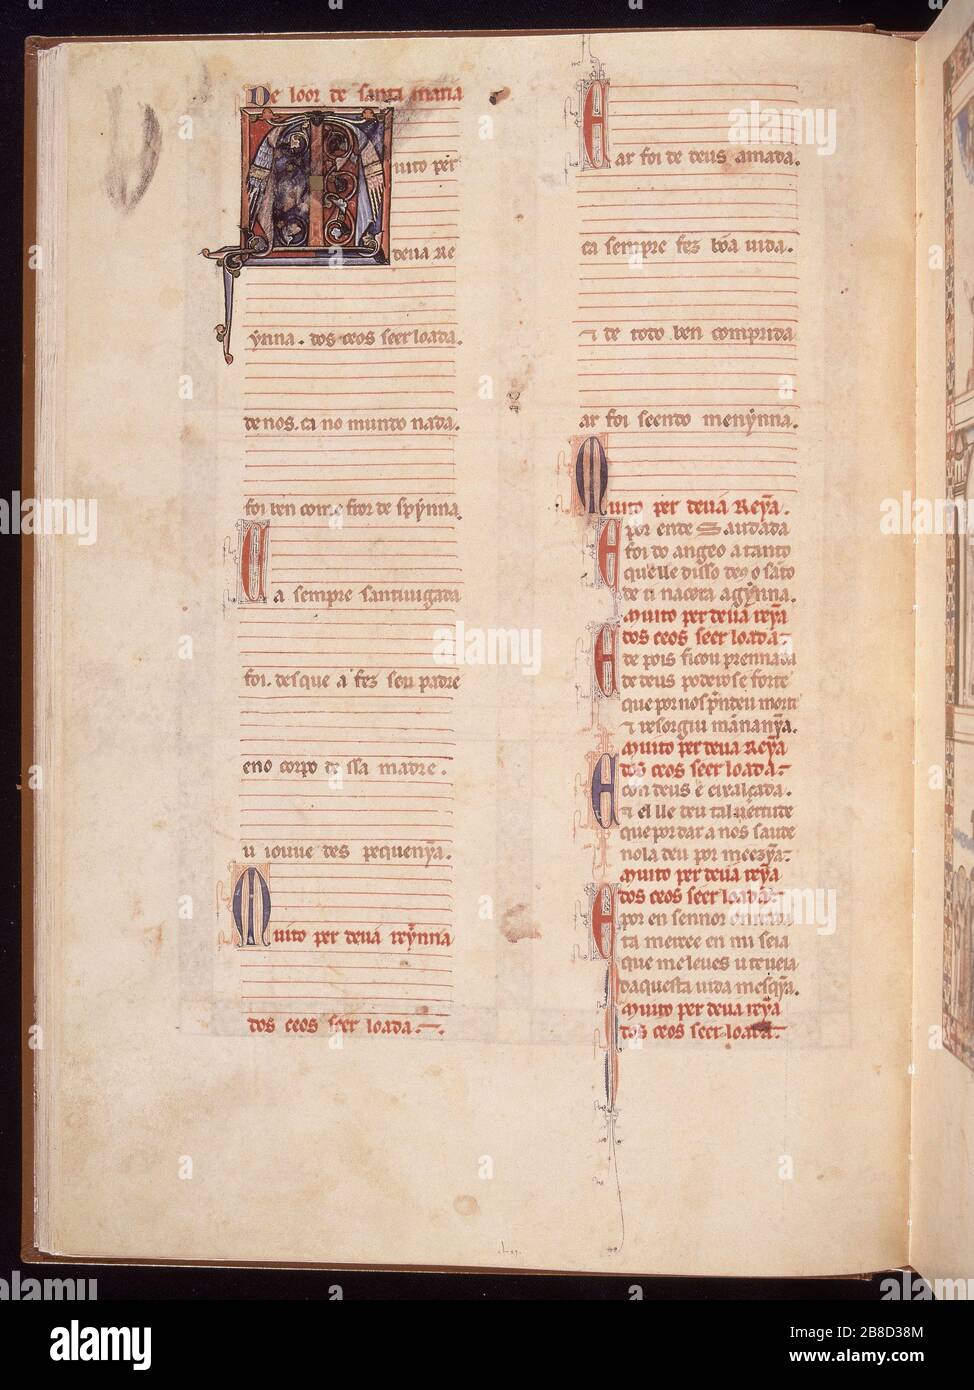 De loor de santa maria
uito per
deua Re
ẏnna. dos ceos seer loada.
de nos. ca no mundo nada.
foi ben come fror de spẏnna.
Ca sempre santiuigada
foi. des que a fez seu padre
eno corpo de ssa madre.
u iouue des pequenẏa.
Muito per deuá reẏnna
dos ceos seer loada.
E ar foi de deus amada.
ca sempre fez bõa uida.
⁊ de todo ben comprida
ar foi seendo menẏnna.
Muito per deuá Reẏa.
E por ende Saudada
foi do angeo a tanto
que lle disso
de ti nacerá agẏnna.
Muito per deuá reẏa
dos ceos seer loada.
E de pois ficou prennada
de deus poderos e forte
que por nos prendeu morte
⁊ resorgiu mãnanẏa.
Muito per deua Reẏa
dos ceos seer loada.
E con deus é eixalçada.
⁊ el lle deu tal uertude
que por dar a nos saude
nola deu por meezẏa.
Muito per deuá reẏa
dos ceos seer loada.
E por en sennor onrrada
ta mercee en mi seia
que me leues u te ueia
daquesta uida mesqẏa.
Muito per deuá reẏa
dos ceos seer loada.
alamy
Image ID: 2B8D38M
www.alamy.com